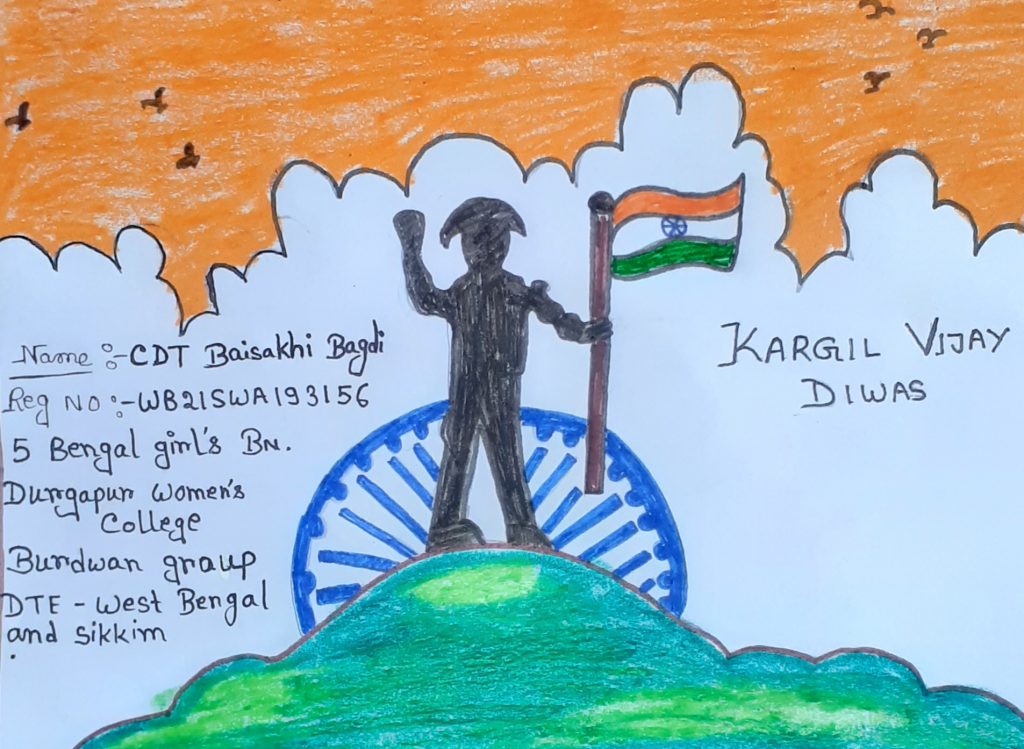 Name :- CDT Baisakhi Bagdi
Reg NO :- WB21SWA193156
5 Bengal girl's BN.
Durgapur Women's
College
Burdwan group
DTE - West Bengal
and Sikkim
KARGIL VIJAY
DIWAS